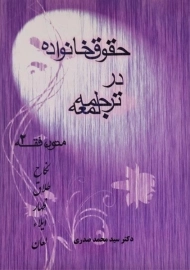 حقوق خانواده
در
ترجمه لمعه
متون فقه ۲
نکاح
طلاق
ظهار
ایلاء
لعان
دکتر سید محمد صدری